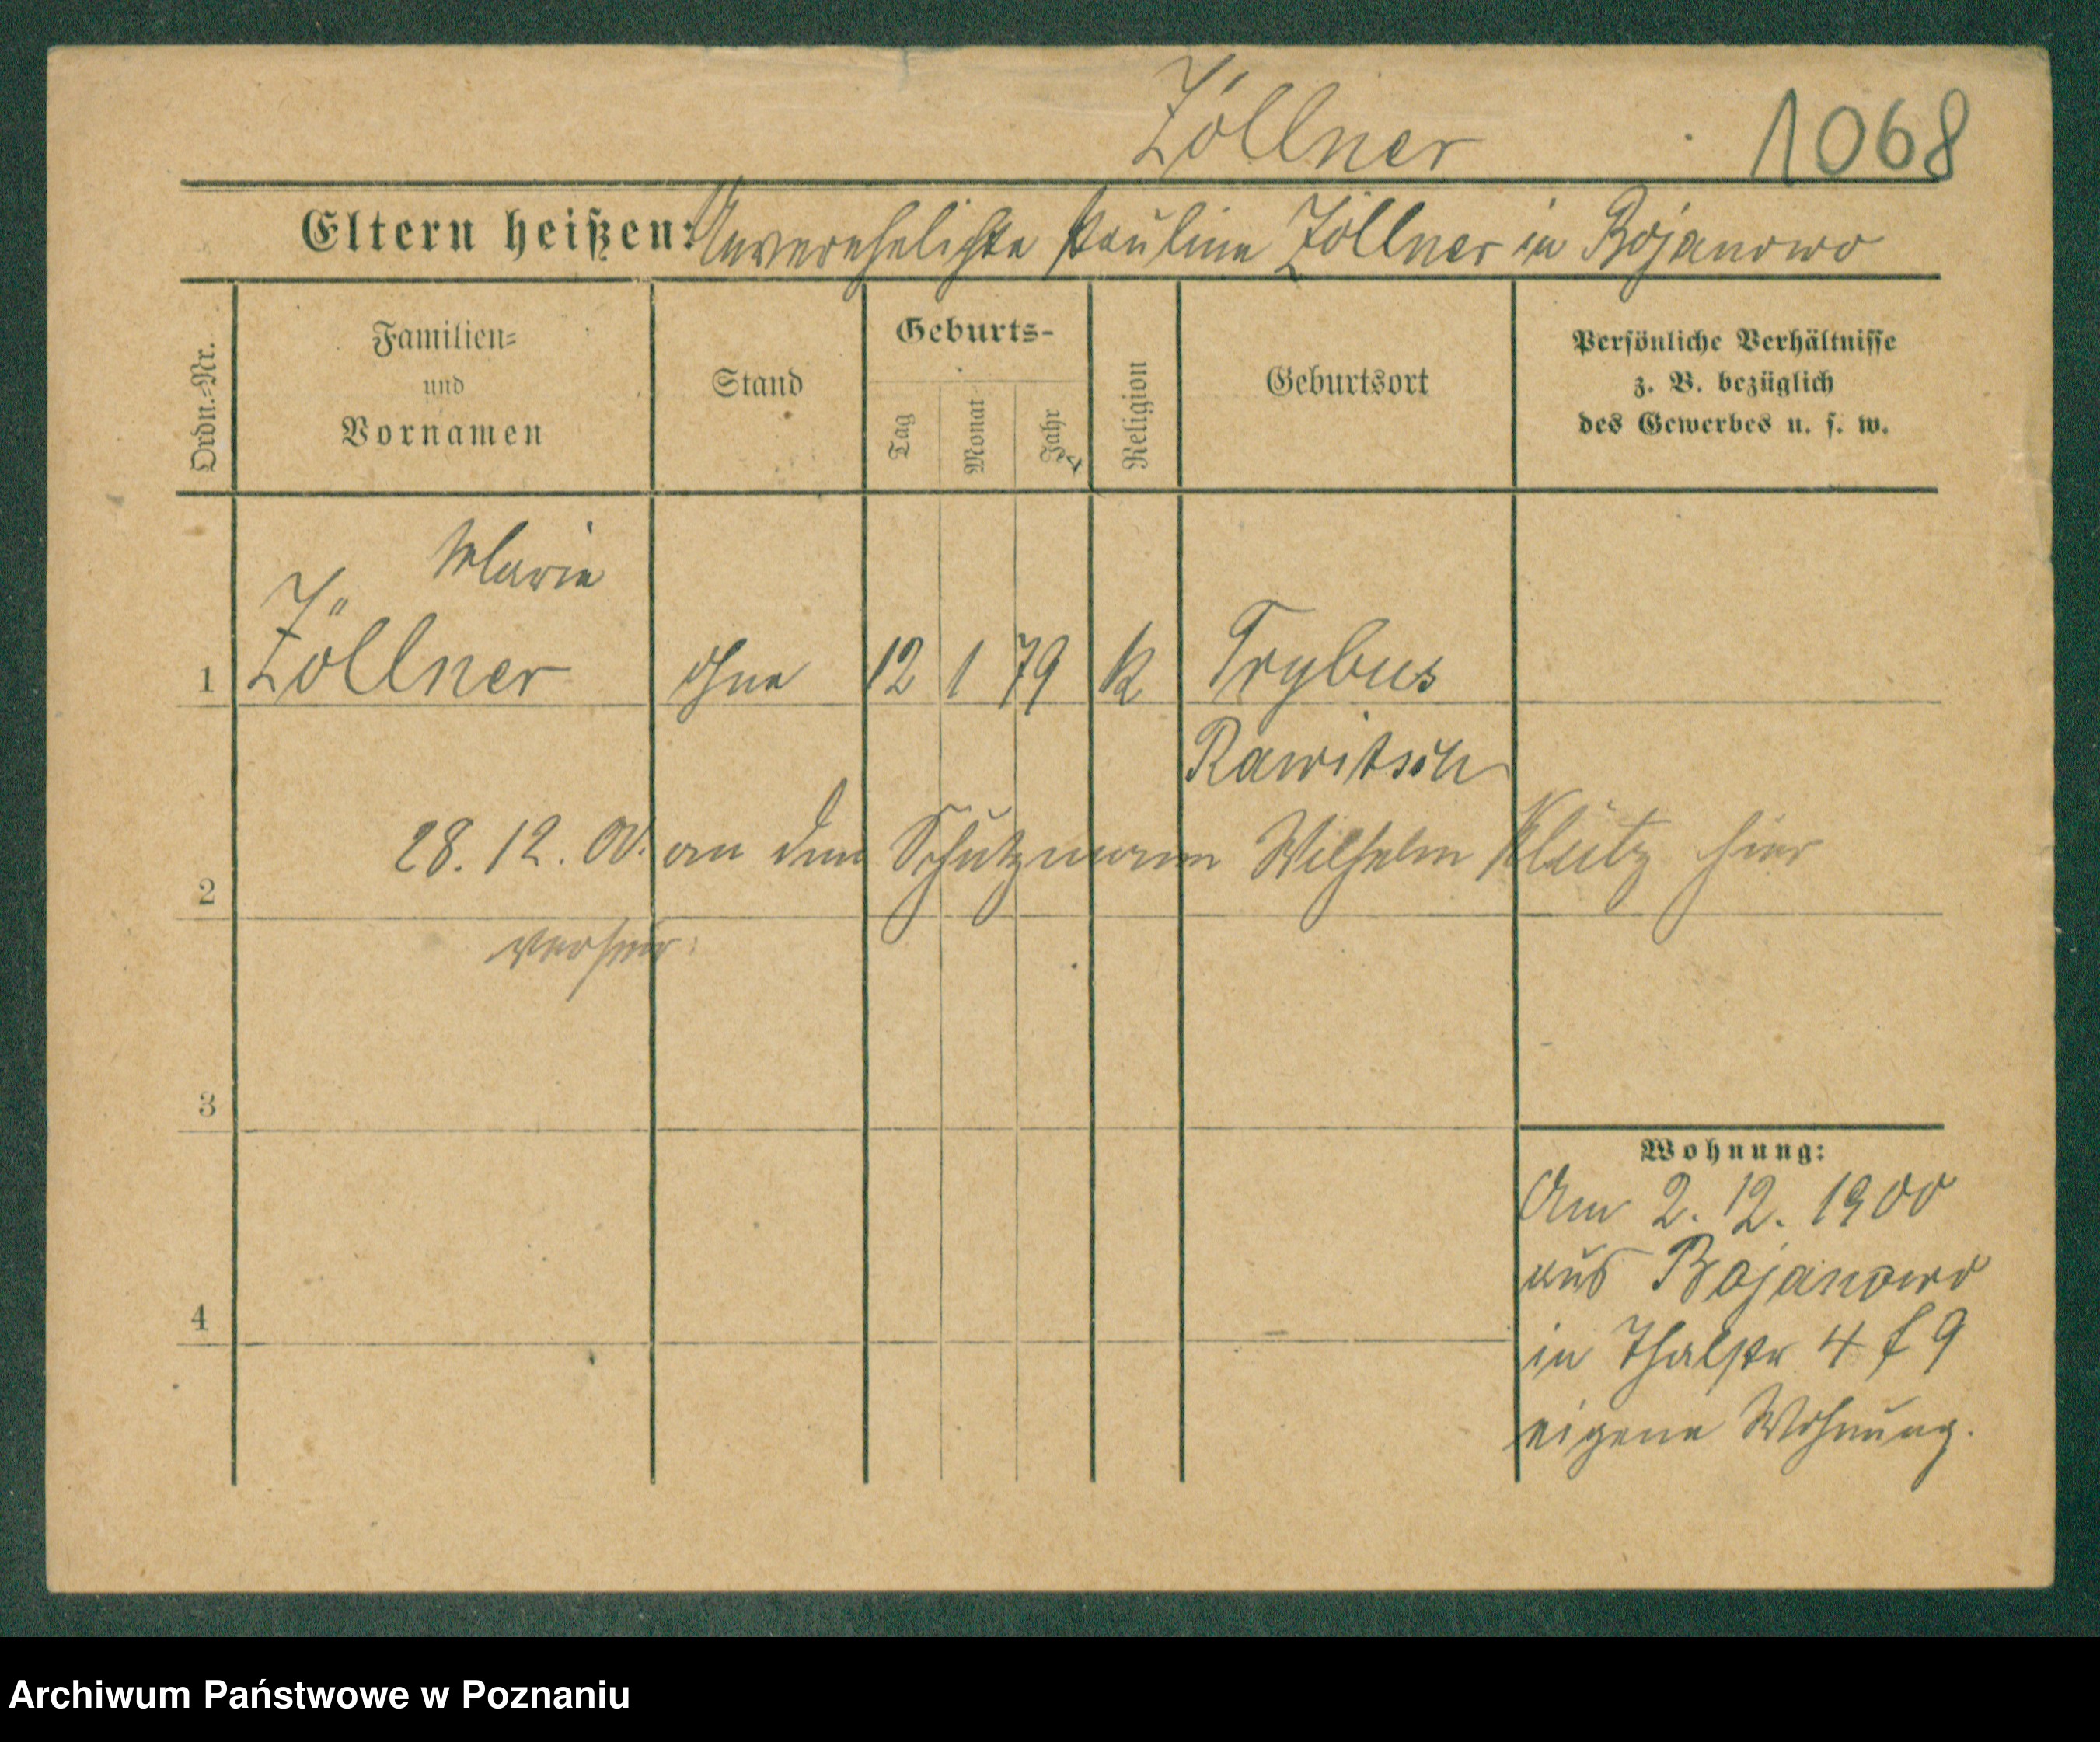 Zöllner 1068
Eltern heißen: Unverehelichte Pauline Zöllner in Bojanowo
Ordn.-Nr.
Familien-
und
Vornamen
Stand
Geburts-
Tag
Monat
Jahr
Religion
Geburtsort
Persönliche Verhältnisse
z. B. bezüglich
des Gewerbes u. s. w.
Marie
1 Zöllner ohne 12 1 79 k Trybus
Rawitsch
2 28. 12. 00. an den Schutzmann Wilhelm Klütz hier
verheir:
3
Wohnung:
Am 2. 12. 1900
aus Bojanowo
4
in Thalstr 4 f 9
eigene Wohnung.
Archiwum Państwowe w Poznaniu